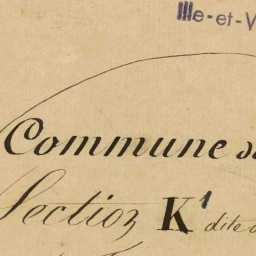 Ille-et-V
Commune d
Section K¹ dite d